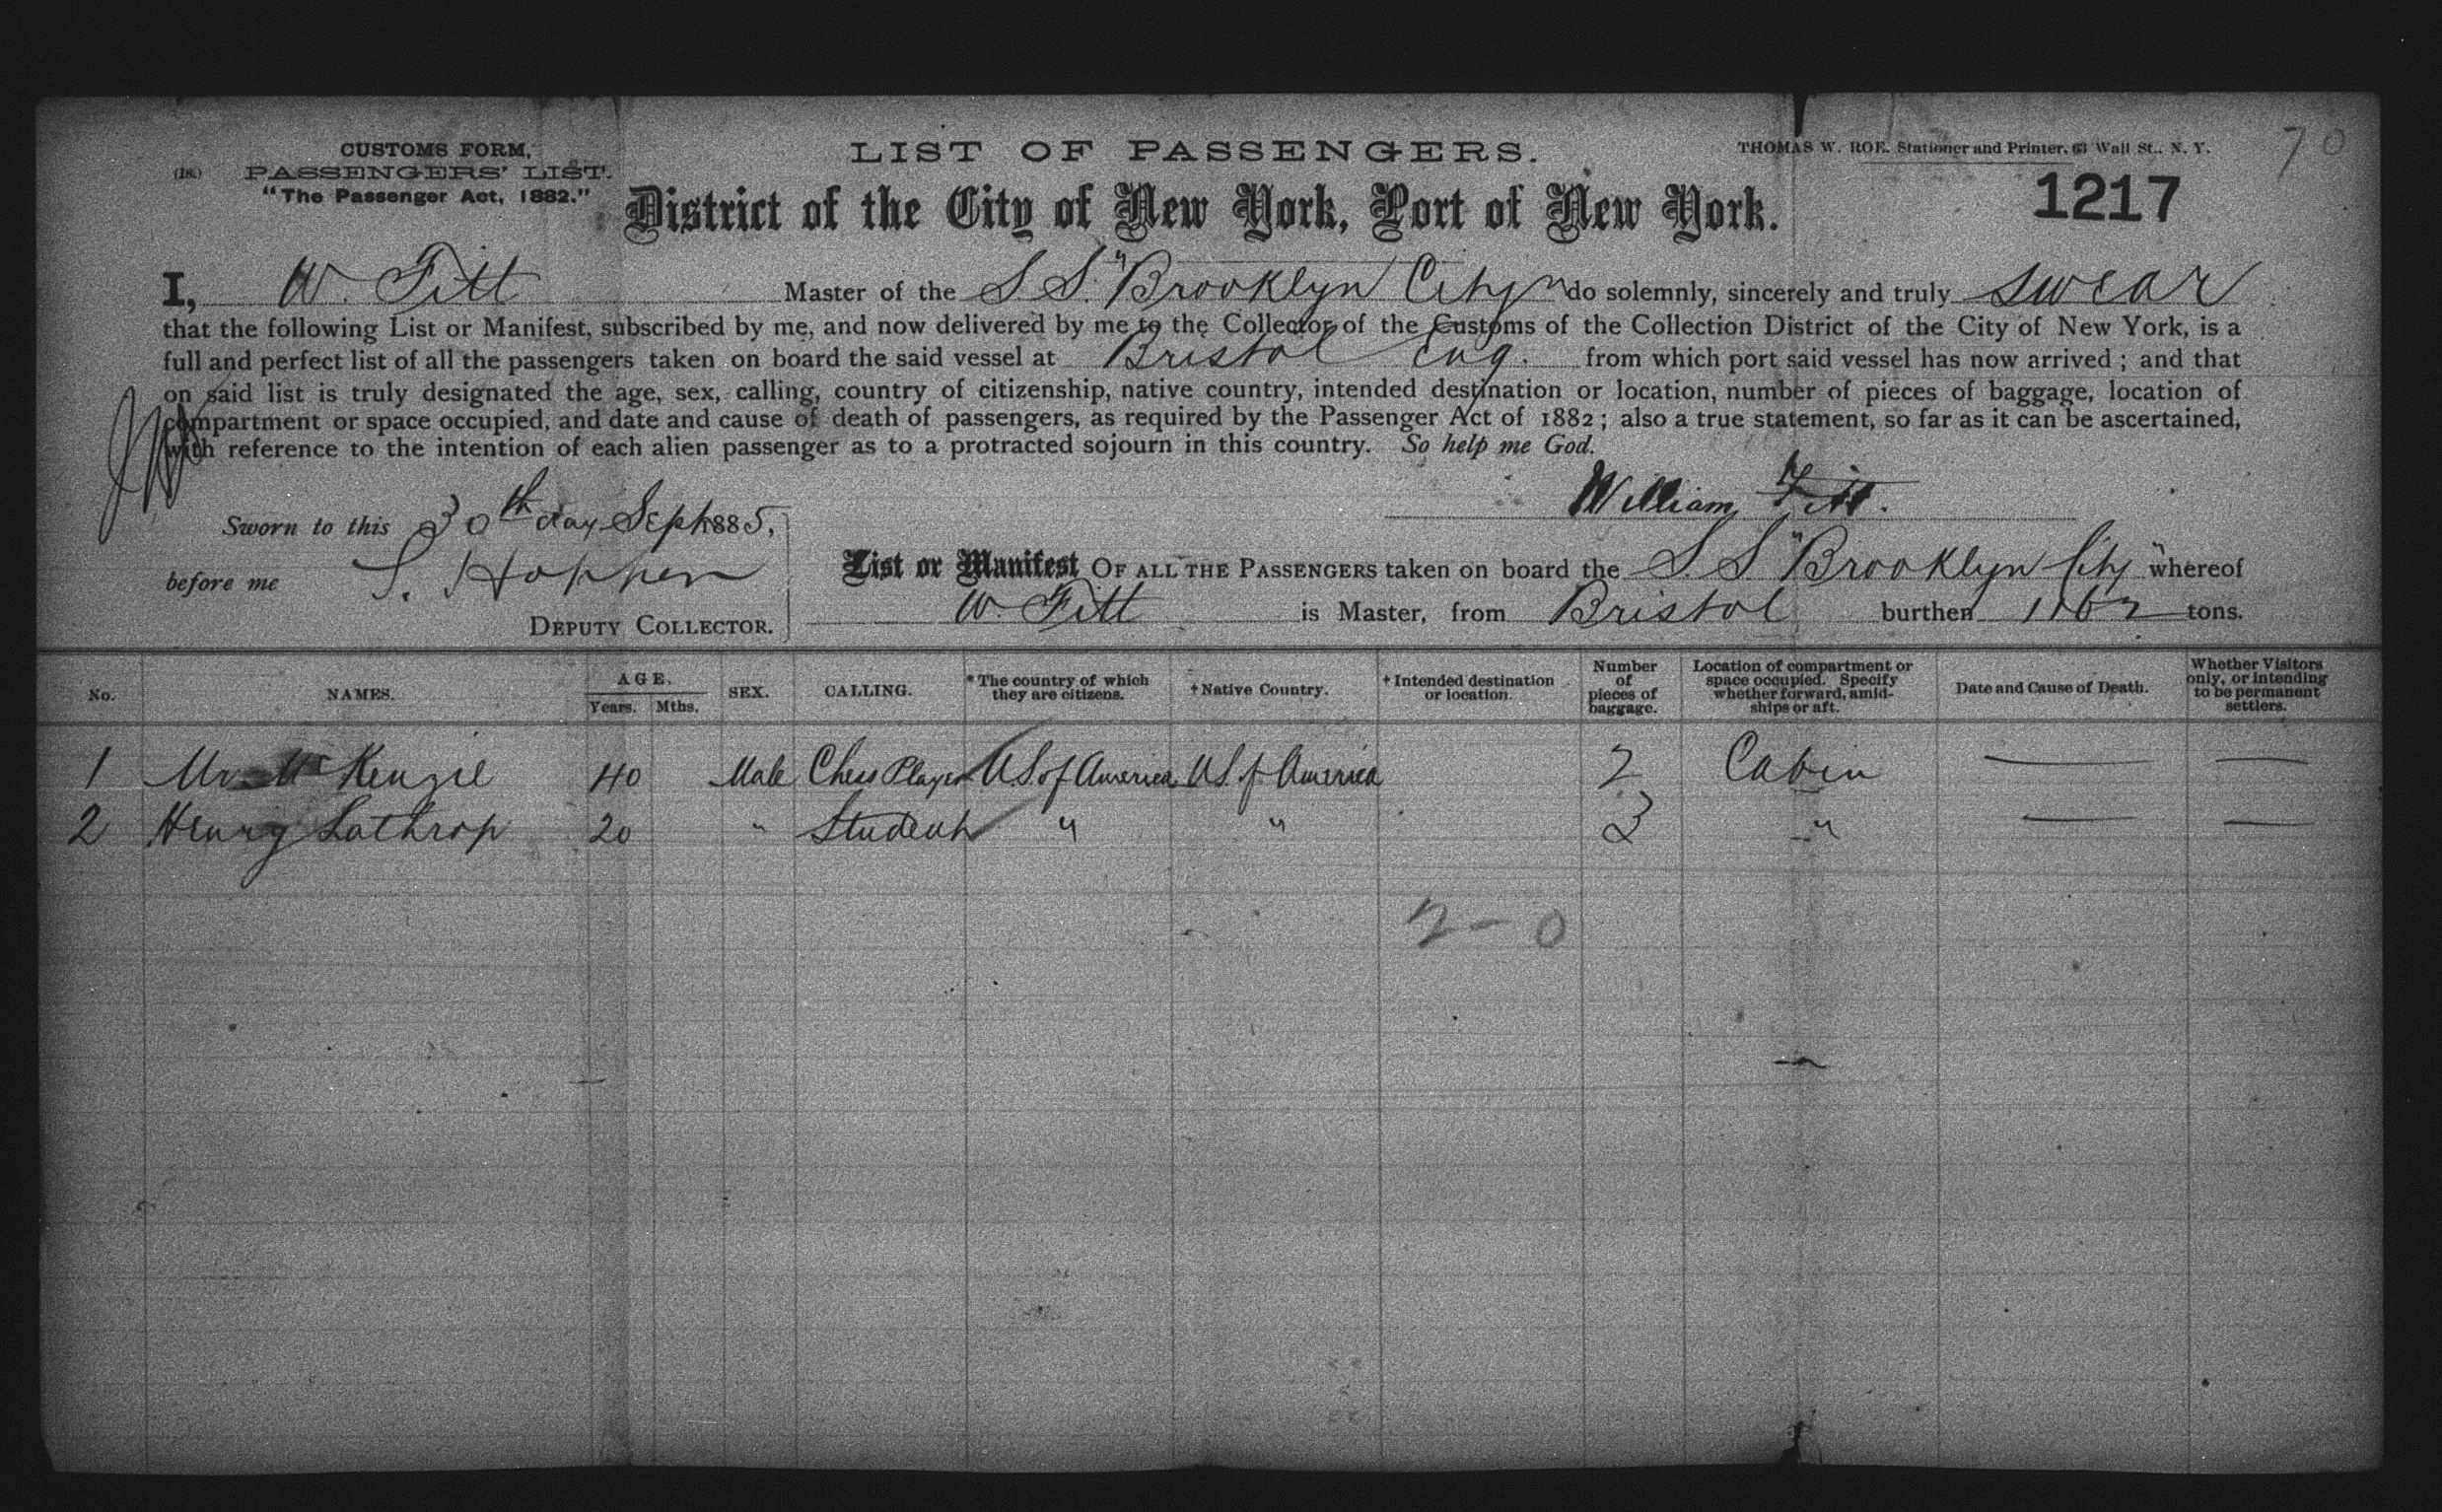 CUSTOMS FORM,
(18.) PASSENGERS' LIST.
"The Passenger Act, 1882."
LIST OF PASSENGERS.
THOMAS W. ROE. Stationer and Printer, 63 Wall St., N. Y.
70
District of the City of New York, Port of New York.
1217
I, W. Fitt Master of the S.S. "Brooklyn City" do solemnly, sincerely and truly swear
that the following List or Manifest, subscribed by me, and now delivered by me to the Collector of the Customs of the Collection District of the City of New York, is a
full and perfect list of all the passengers taken on board the said vessel at Bristol Eng. from which port said vessel has now arrived; and that
on said list is truly designated the age, sex, calling, country of citizenship, native country, intended destination or location, number of pieces of baggage, location of
compartment or space occupied, and date and cause of death of passengers, as required by the Passenger Act of 1882; also a true statement, so far as it can be ascertained,
with reference to the intention of each alien passenger as to a protracted sojourn in this country. So help me God.
William Fitt.
Sworn to this 30th day Sept 1885,
before me S. Hopper
DEPUTY COLLECTOR.
List or Manifest OF ALL THE PASSENGERS taken on board the S.S "Brooklyn City" whereof
W. Fitt is Master, from Bristol burthen tons.
No. NAMES. AGE. Years. Mths. SEX. CALLING. *The country of which they are citizens. †Native Country. †Intended destination or location. Number of pieces of baggage. Location of compartment or space occupied. Specify whether forward, amidships or aft. Date and Cause of Death. Whether Visitors only, or intending to be permanent settlers.
1 Mr McKenzie 40 Male Chess Player U.S. of America U.S. of America 2 Cabin — —
2 Henry Lathrop 20 " Student " " 3 " — —
2 - 0